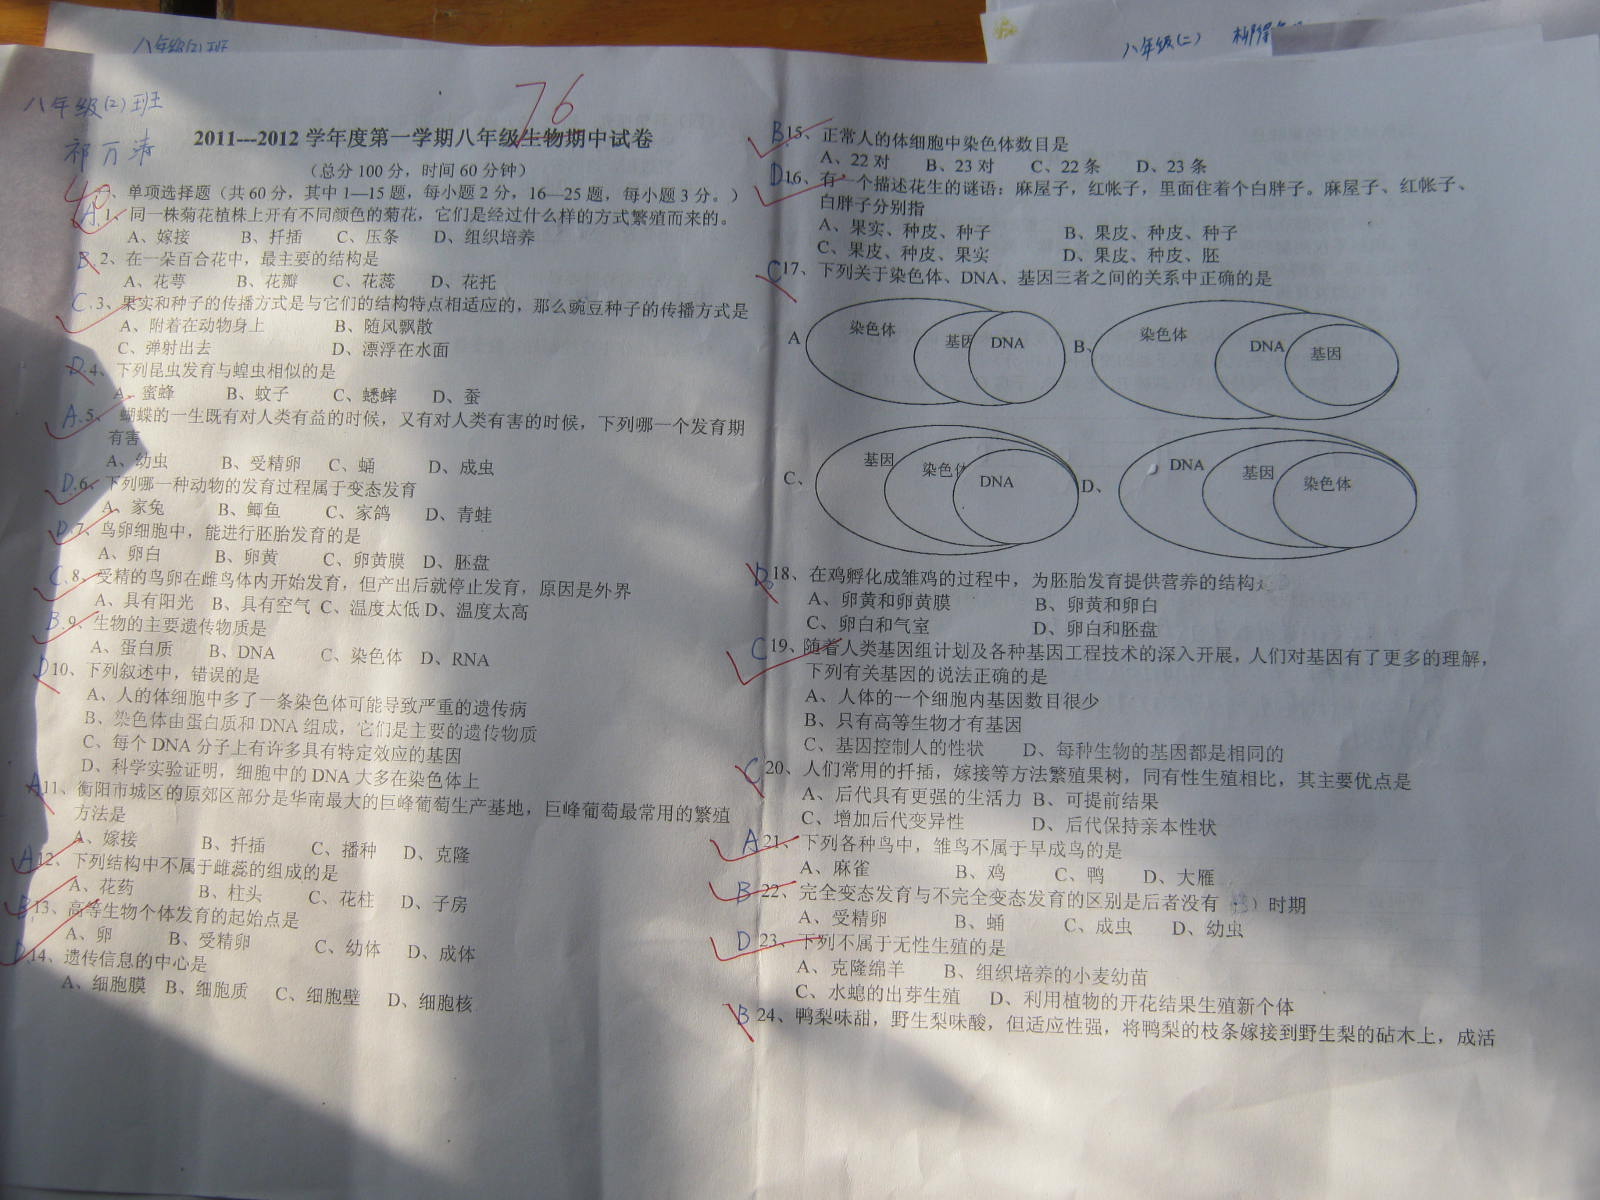 八年级(2)班
八年级(二)
八年级(2)班
祁万清
76
2011---2012 学年度第一学期八年级生物期中试卷
（总分 100 分，时间 60 分钟）
40
、单项选择题（共 60 分，其中 1—15 题，每小题 2 分，16—25 题，每小题 3 分。）
A 1、同一株菊花植株上开有不同颜色的菊花，它们是经过什么样的方式繁殖而来的。
A、嫁接 B、扦插 C、压条 D、组织培养
B 2、在一朵百合花中，最主要的结构是
A、花萼 B、花瓣 C、花蕊 D、花托
C 3、果实和种子的传播方式是与它们的结构特点相适应的，那么豌豆种子的传播方式是
A、附着在动物身上 B、随风飘散
C、弹射出去 D、漂浮在水面
D 4、下列昆虫发育与蝗虫相似的是
A、蜜蜂 B、蚊子 C、蟋蟀 D、蚕
A 5、蝴蝶的一生既有对人类有益的时候，又有对人类有害的时候，下列哪一个发育期
有害
A、幼虫 B、受精卵 C、蛹 D、成虫
D 6、下列哪一种动物的发育过程属于变态发育
A、家兔 B、鲫鱼 C、家鸽 D、青蛙
D 7、鸟卵细胞中，能进行胚胎发育的是
A、卵白 B、卵黄 C、卵黄膜 D、胚盘
C 8、受精的鸟卵在雌鸟体内开始发育，但产出后就停止发育，原因是外界
A、具有阳光 B、具有空气 C、温度太低 D、温度太高
B 9、生物的主要遗传物质是
A、蛋白质 B、DNA C、染色体 D、RNA
D 10、下列叙述中，错误的是
A、人的体细胞中多了一条染色体可能导致严重的遗传病
B、染色体由蛋白质和 DNA 组成，它们是主要的遗传物质
C、每个 DNA 分子上有许多具有特定效应的基因
D、科学实验证明，细胞中的 DNA 大多在染色体上
A 11、衡阳市城区的原郊区部分是华南最大的巨峰葡萄生产基地，巨峰葡萄最常用的繁殖
方法是
A、嫁接 B、扦插 C、播种 D、克隆
A 12、下列结构中不属于雌蕊的组成的是
A、花药 B、柱头 C、花柱 D、子房
B 13、高等生物个体发育的起始点是
A、卵 B、受精卵 C、幼体 D、成体
D 14、遗传信息的中心是
A、细胞膜 B、细胞质 C、细胞壁 D、细胞核
B 15、正常人的体细胞中染色体数目是
A、22 对 B、23 对 C、22 条 D、23 条
D 16、有一个描述花生的谜语：麻屋子，红帐子，里面住着个白胖子。麻屋子、红帐子、
白胖子分别指
A、果实、种皮、种子 B、果皮、种皮、种子
C、果皮、种皮、果实 D、果皮、种皮、胚
C 17、下列关于染色体、DNA、基因三者之间的关系中正确的是
A 染色体 基因 DNA B、 染色体 DNA 基因
C、 基因 染色体 DNA D、 DNA 基因 染色体
18、在鸡孵化成雏鸡的过程中，为胚胎发育提供营养的结构
A、卵黄和卵黄膜 B、卵黄和卵白
C、卵白和气室 D、卵白和胚盘
C 19、随着人类基因组计划及各种基因工程技术的深入开展，人们对基因有了更多的理解，
下列有关基因的说法正确的是
A、人体的一个细胞内基因数目很少
B、只有高等生物才有基因
C、基因控制人的性状 D、每种生物的基因都是相同的
C 20、人们常用的扦插，嫁接等方法繁殖果树，同有性生殖相比，其主要优点是
A、后代具有更强的生活力 B、可提前结果
C、增加后代变异性 D、后代保持亲本性状
A 21、下列各种鸟中，雏鸟不属于早成鸟的是
A、麻雀 B、鸡 C、鸭 D、大雁
B 22、完全变态发育与不完全变态发育的区别是后者没有 ）时期
A、受精卵 B、蛹 C、成虫 D、幼虫
D 23、下列不属于无性生殖的是
A、克隆绵羊 B、组织培养的小麦幼苗
C、水螅的出芽生殖 D、利用植物的开花结果生殖新个体
B 24、鸭梨味甜，野生梨味酸，但适应性强，将鸭梨的枝条嫁接到野生梨的砧木上，成活